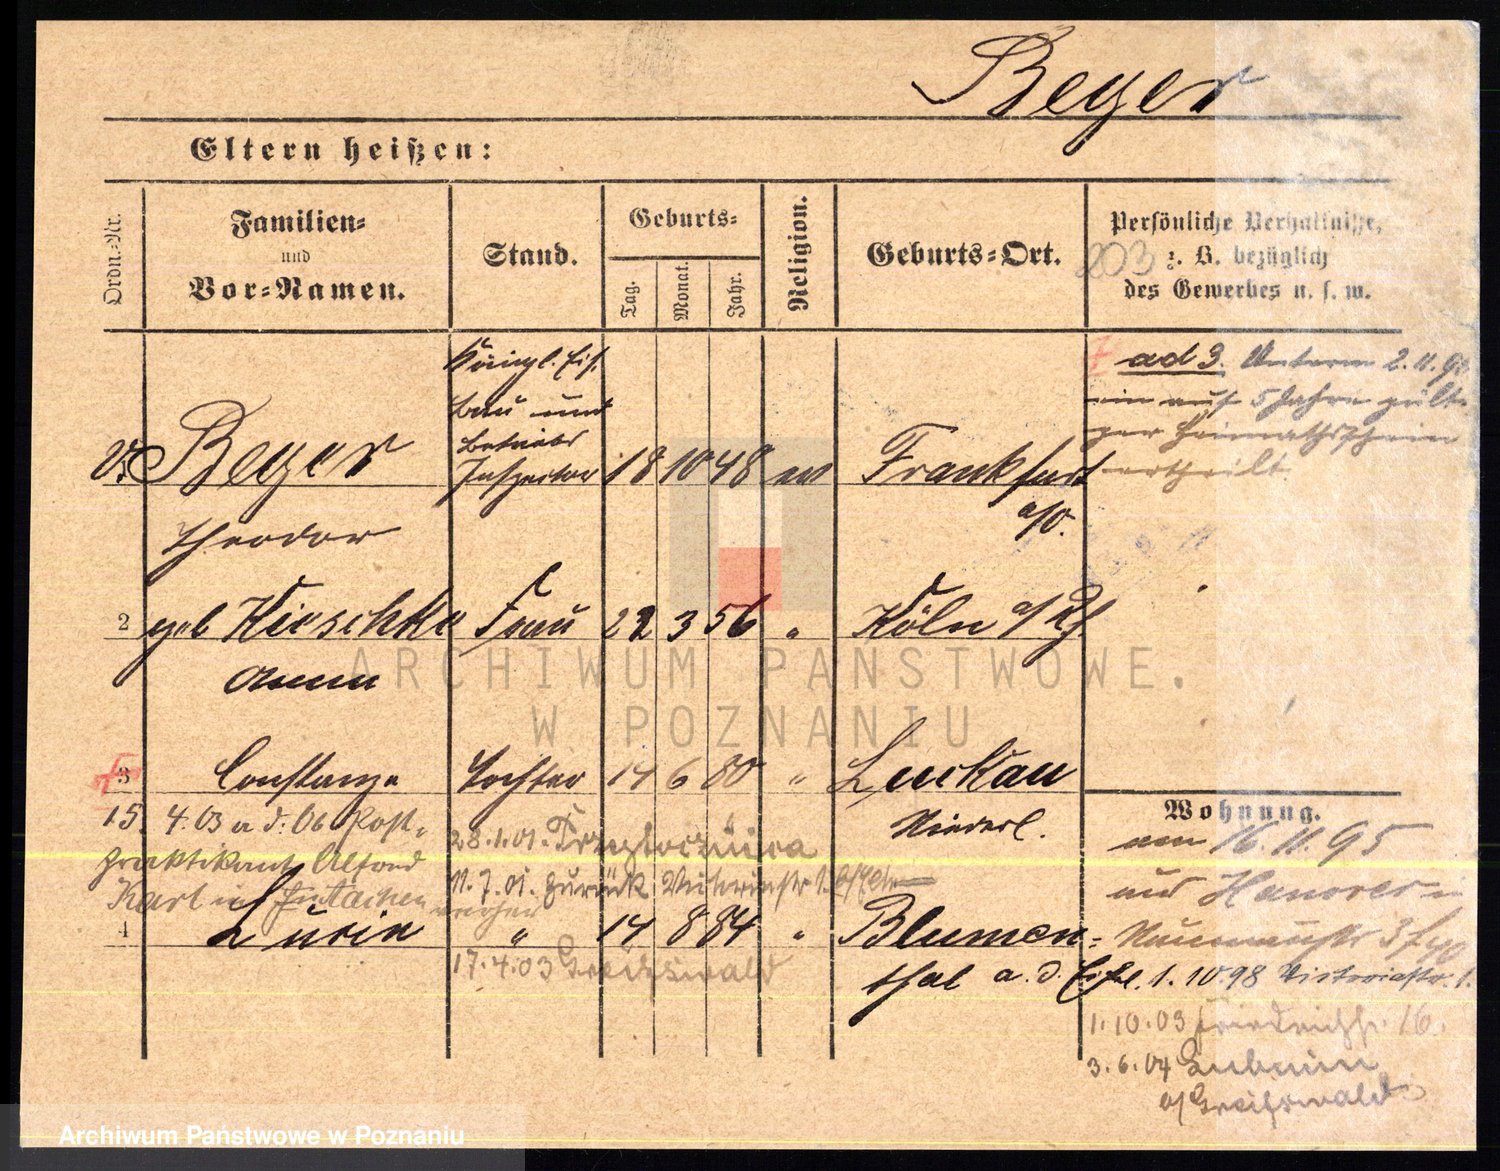 Beyer
Eltern heißen:
Ordn.-Nr.
Familien-
und
Vor-Namen.
Stand.
Geburts-
Tag.
Monat.
Jahr.
Religion.
Geburts-Ort.
Persönliche Verhältnisse,
z. B. bezüglich
des Gewerbes u. s. w.
203
Königl. Eis.
Bau und
Betriebs
Beyer Inspector 18 10 48 Frankfurt
a/O.
Theodor
ad 3. Unterm 2.11.9
ein auf 5 Jahre gülti
ger Heimathschein
ertheilt.
2 geb Kieschke Frau 22 3 56 " Köln a/Rh
Anna
3 Constanze Tochter 14 6 80 " Luckau
Niederl.
15. 4.03 a d. Ob. Post-
praktikant Alfred
Karl in
28.1.01.
11.7.01. zurück Victoriastr 1.
4 Lucie " 14 8 84 " Blumen-
thal a. d. Eifel.
17.4.03 Greifswald
Wohnung.
am 16.11.95
aus Hanover in
Naumannstr 3
1.10.98 Victoriastr. 1.
1.10.03 Friedrichstr. 16.
3.6.04 Lubmin
a/Greifswald
ARCHIWUM PAŃSTWOWE.
W POZNANIU
Archiwum Państwowe w Poznaniu